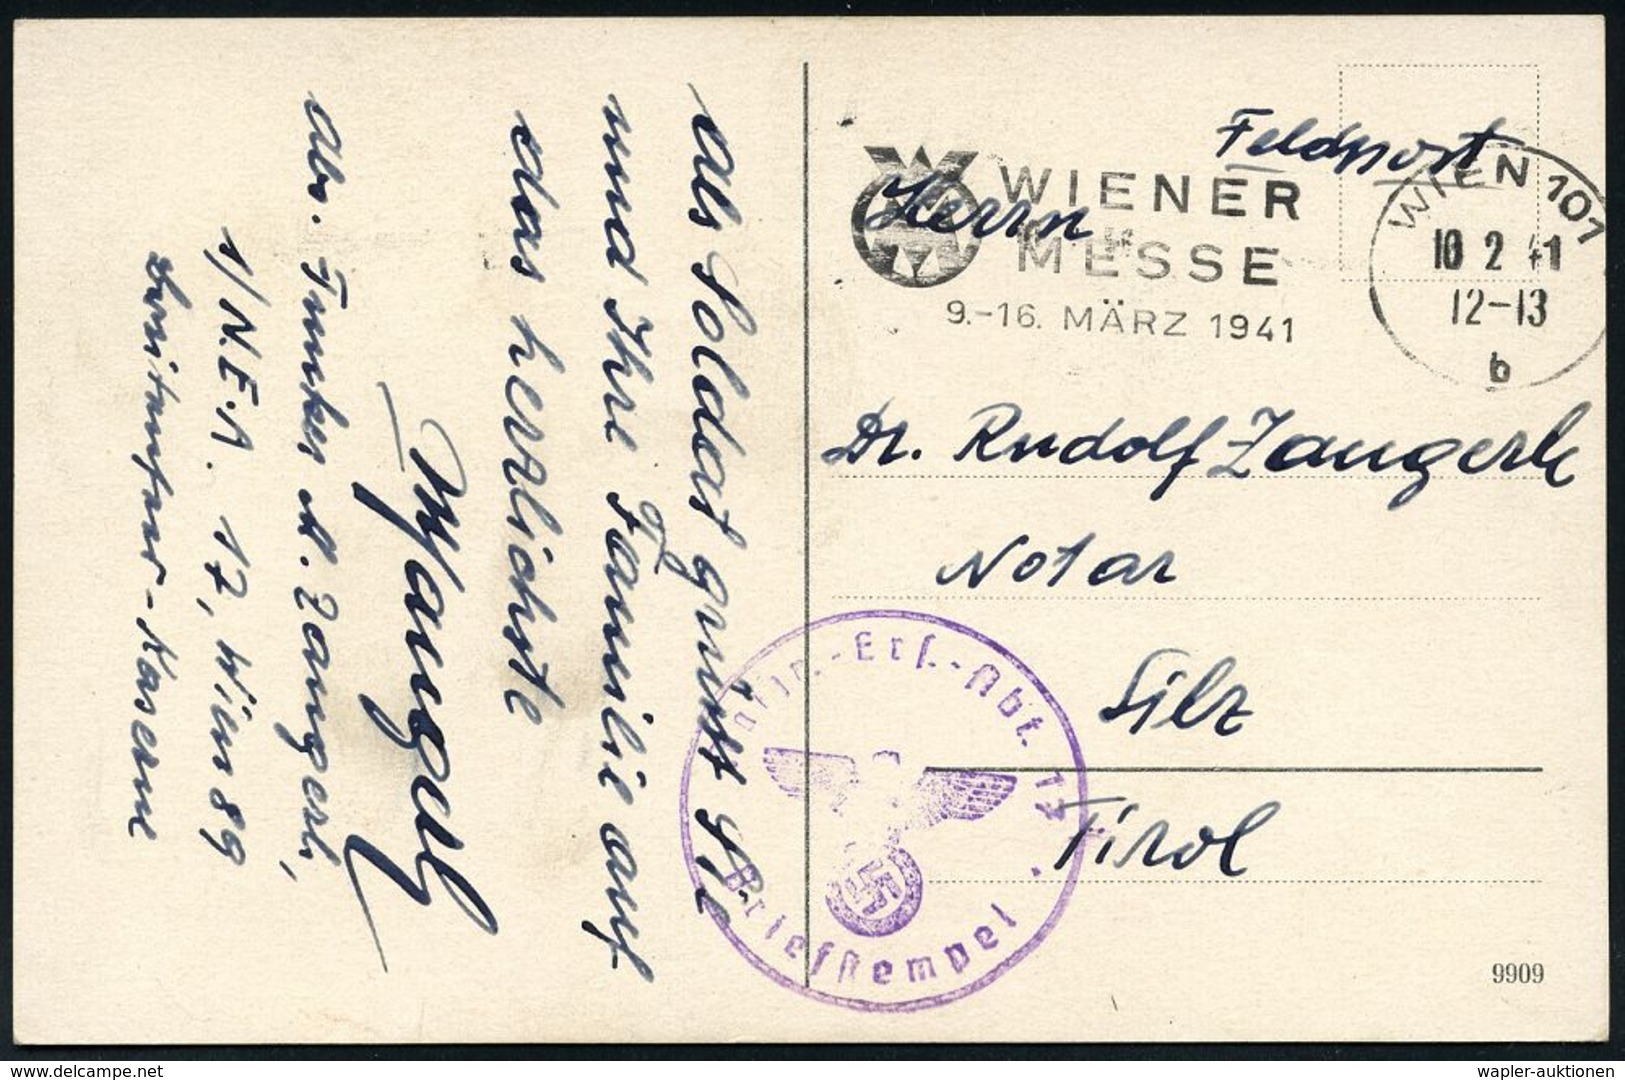 Als Soldat grüsst Sie
und Ihre Familie auf
das herzlichste
Abs. Funker A. Zangerl,
1/N.E.A. 17, Wien 89
Kaserne
Feldpost
WIENER
MESSE
9.-16. MÄRZ 1941
WIEN 101
10 2 41
12-13
b
Herrn
Dr. Rudolf Zangerle
Notar
Silz
Tirol
Ers.-Abt. 17
Briefstempel
9909
www.delcampe.net
wapler-auktionen